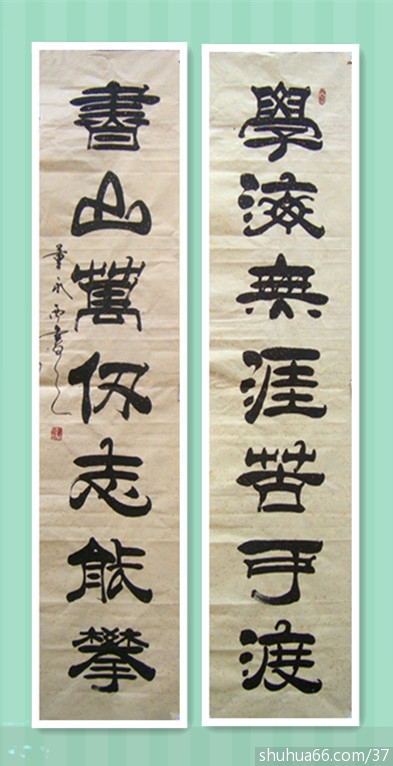 學海無涯苦可渡
書山萬仞志能攀
shuhua66.com/37